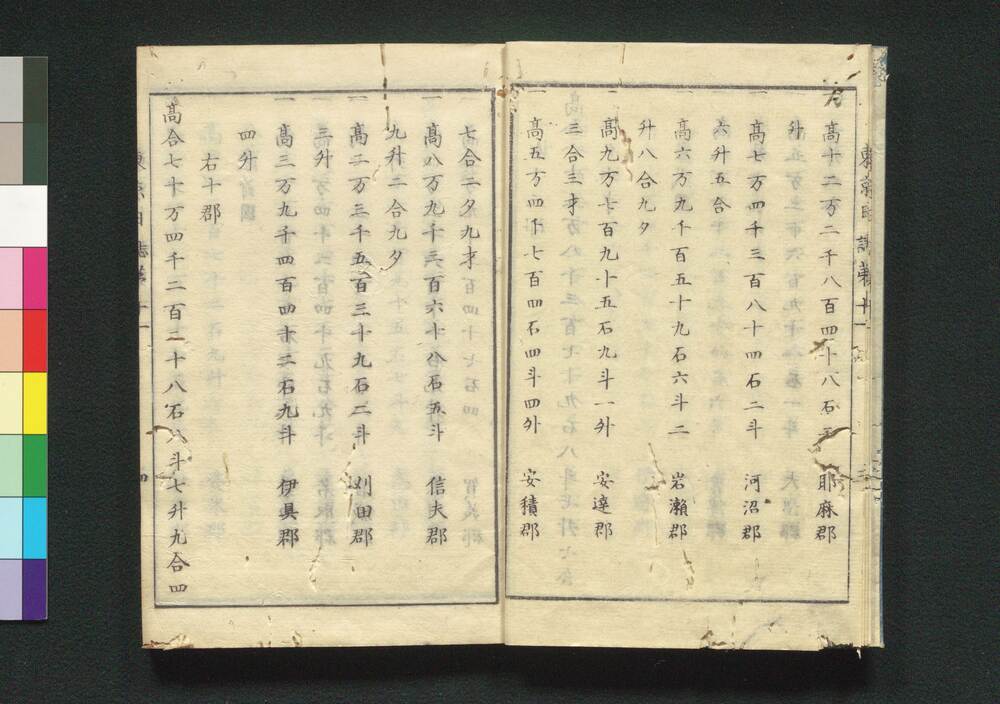 東京日誌第十一
一 高十二万二千八百四十八石五斗 耶麻郡
升
一 高七万四千三百八十四石二斗 河沼郡
六升五合
一 高六万九千百五十九石六斗二 岩瀬郡
升八合九夕
一 高九万七百九十五石九斗一升 安達郡
三合三才
一 高五万四千七百四石四斗四升 安積郡
七合二夕九才
一 高八万九千三百六十八石五斗 信夫郡
九升二合九夕
一 高二万三千五百三十九石二斗 刈田郡
三升
一 高三万九千四百四十二石九斗 伊具郡
四升
右十郡
高合七十万四千二百三十八石八斗七升九合四